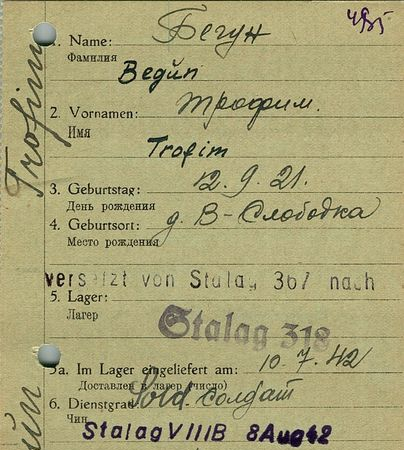 Trofim
1. Name: Бегун
Фамилия
Begun
2. Vornamen: Трофим.
Имя
Trofim
3. Geburtstag: 12. 9. 21.
День рождения
4. Geburtsort: д. В-Слободка
Место рождения
versetzt von Stalag 367 nach
5. Lager:
Лагерь
Stalag 318
5a. Im Lager eingeliefert am: 10. 7. 42
Доставлен в лагерь (число)
6. Dienstgrad: Sold. солдат
Чин
Stalag VIIIB 8 Aug 42